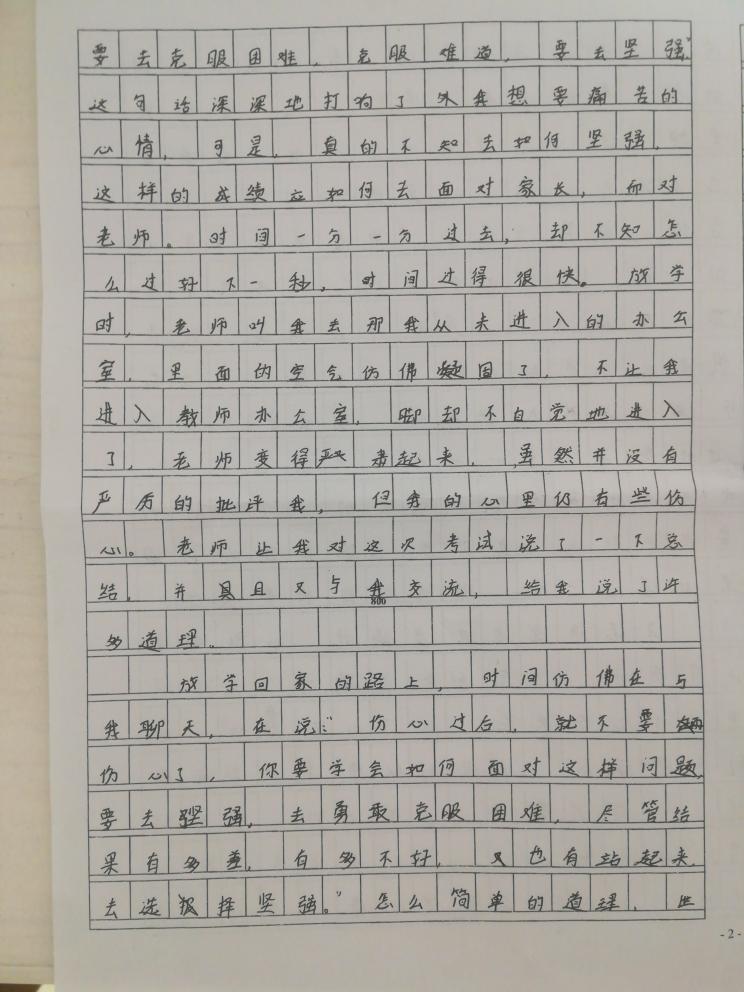 要去克服困难，克服难道，要去坚强”
这句话深深地打狗了外我想要痛苦的
心情，可是，真的不知去如何坚强，
这样的成绩应如何去面对家长，而对
老师。时间一分一分过去，却不知怎
么过好下一秒，时间过得很快。放学
时，老师叫我去那我从未进入的办公
室，里面的空气仿佛凝固了，不让我
进入教师办公室，脚却不自觉地进入
了，老师变得严肃起来，虽然并没有
严厉的批评我，但我的心里仍有些伤
心。老师让我对这次考试说了一下总
结。并具且又与我交流，给我说了许
800
多道理。
放学回家的路上，时间仿佛在与
我聊天，在说：“伤心过后，就不要
伤心了，你要学会如何面对这样问题，
要去坚强，去勇敢克服困难，尽管结
果有多差，有多不好，又也有站起来，
去选择坚强。”怎么简单的道理，
- 2 -